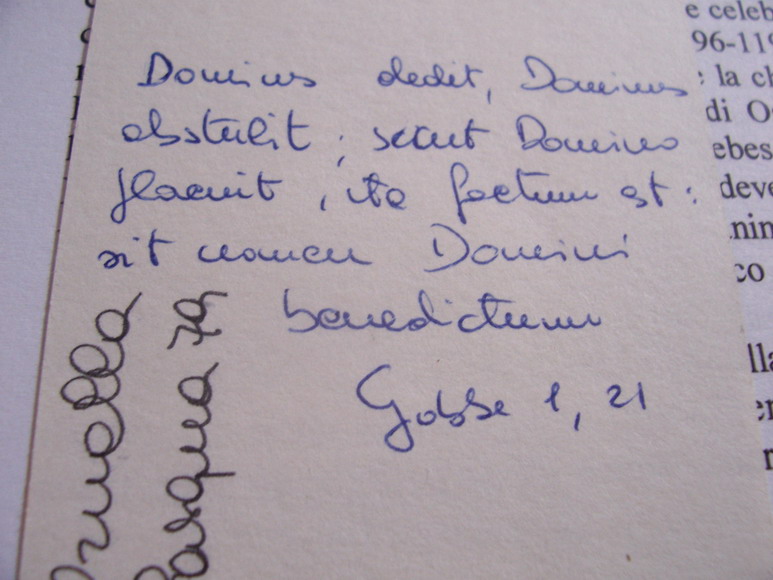 Dominus dedit, Dominus
abstulit; sicut Domino
placuit, ita factum est:
sit nomen Domini
benedictum
Gobbe 1, 21
Ornella
Pasqua 79
e celeb
96-119
: la ch
di O
ebes
deve
nin
co
lla
er